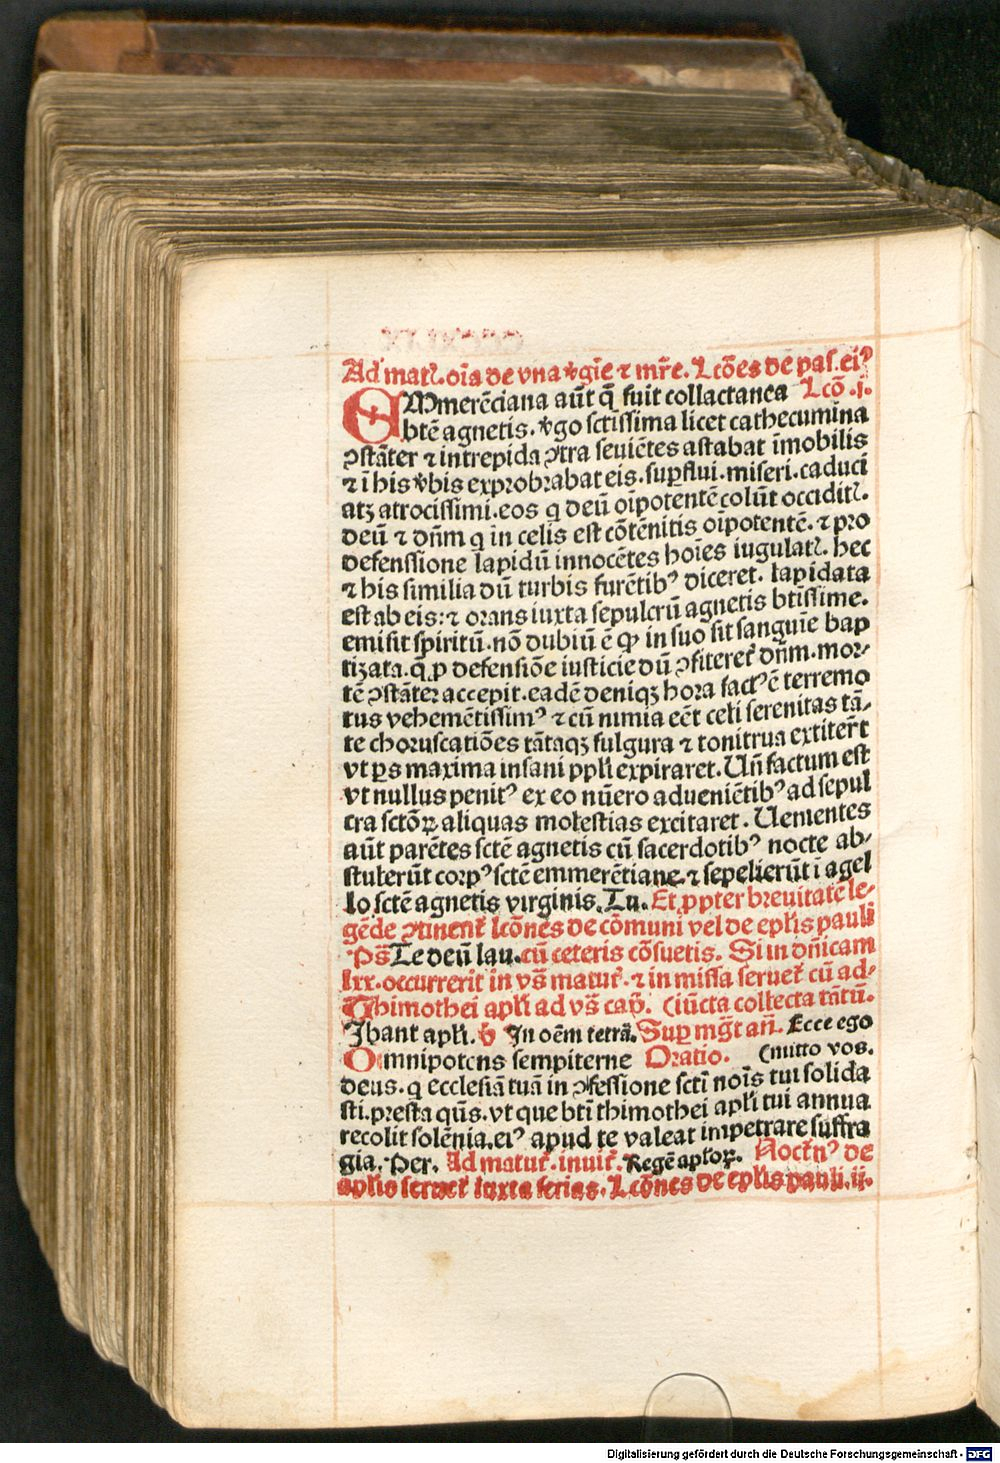 Ad matꝭ. oīa de vna v̓gīe ⁊ mr̄e. Lcōes de pas. eiꝰ
EMmerēciana aūt q̄ fuit collactanea Lcō .i.
btē agnetis. v̓go sctissima licet cathecumina
ꝯstāter ⁊ intrepida ꝯtra seuiētes astabat īmobilis
⁊ ī his v̓bis exprobrabat eis. suꝑflui. miseri. caduci
atqꝫ atrocissimi. eos q deū oīpotentē colūt occiditꝭ.
deū ⁊ dn̄m q in celis est cōtēnitis oīpotentē. ⁊ pro
defenssione lapidū innocētes hoīes iugulatꝭ. hec
⁊ his similia dū turbis furētibꝰ diceret. lapidata
est ab eis: ⁊ orans iuxta sepulcrū agnetis btīssime.
emisit spiritū. nō dubiū ē qꝙ in suo sit sanguīe bap
tizata. q̄ ꝓ defensiōe iusticie dū ꝯfiteret̉ dn̄m. mor⸗
tē ꝯstāter accepit. eadē deniqꝫ hora factꝰ ē terremo
tus vehemētissimꝰ ⁊ cū nimia eēt celi serenitas tā⸗
te choruscatiōes tātaqꝫ fulgura ⁊ tonitrua extiter̄t
vt ꝑs maxima insani ppl̓i expiraret. Un̄ factum est
vt nullus penitꝰ ex eo nūero adueniētibꝰ ad sepul
cra sctōꝝ aliquas molestias excitaret. Uenientes
aūt parētes sctē agnetis cū sacerdotibꝰ nocte ab⸗
stulerūt corpꝰ sctē emmerētiane. ⁊ sepelierūt ī agel
lo sctē agnetis virginis. Tu. Et ꝓpter breuitatē le⸗
gēde ꝯtinent̉ lcōnes de cōmuni vel de epl̓is pauli
Ps̄ Te deū lau. cū ceteris cōsuetis. Si in dn̄icam
lxx. occurrerit in vs̄ matut̉. ⁊ in missa seruet̉ cū ad⸗
Thimothei apl̓i ad vs̄ cap̄. (iūcta collecta tātū.
Jbant apl̓i. v̓ Jn oēm terrā. Sup mg̃t an̄. Ecce ego
Omnipotens sempiterne Oratio. (mitto vos.
deus. q ecclesiā tuā in ꝯfessione sctī noīs tui solida
sti. presta qūs. vt que btī thimothei apl̓i tui annua
recolit solēnia. eiꝰ apud te valeat impetrare suffra
gia. Per. Ad matut̉. inuit̉. Regē apl̓oꝝ. Noct̉nꝰ de
apl̓is seruet̉ iuxta ferias. Lcōnes de epl̓is pauli. ij.
Digitalisierung gefördert durch die Deutsche Forschungsgemeinschaft - DFG